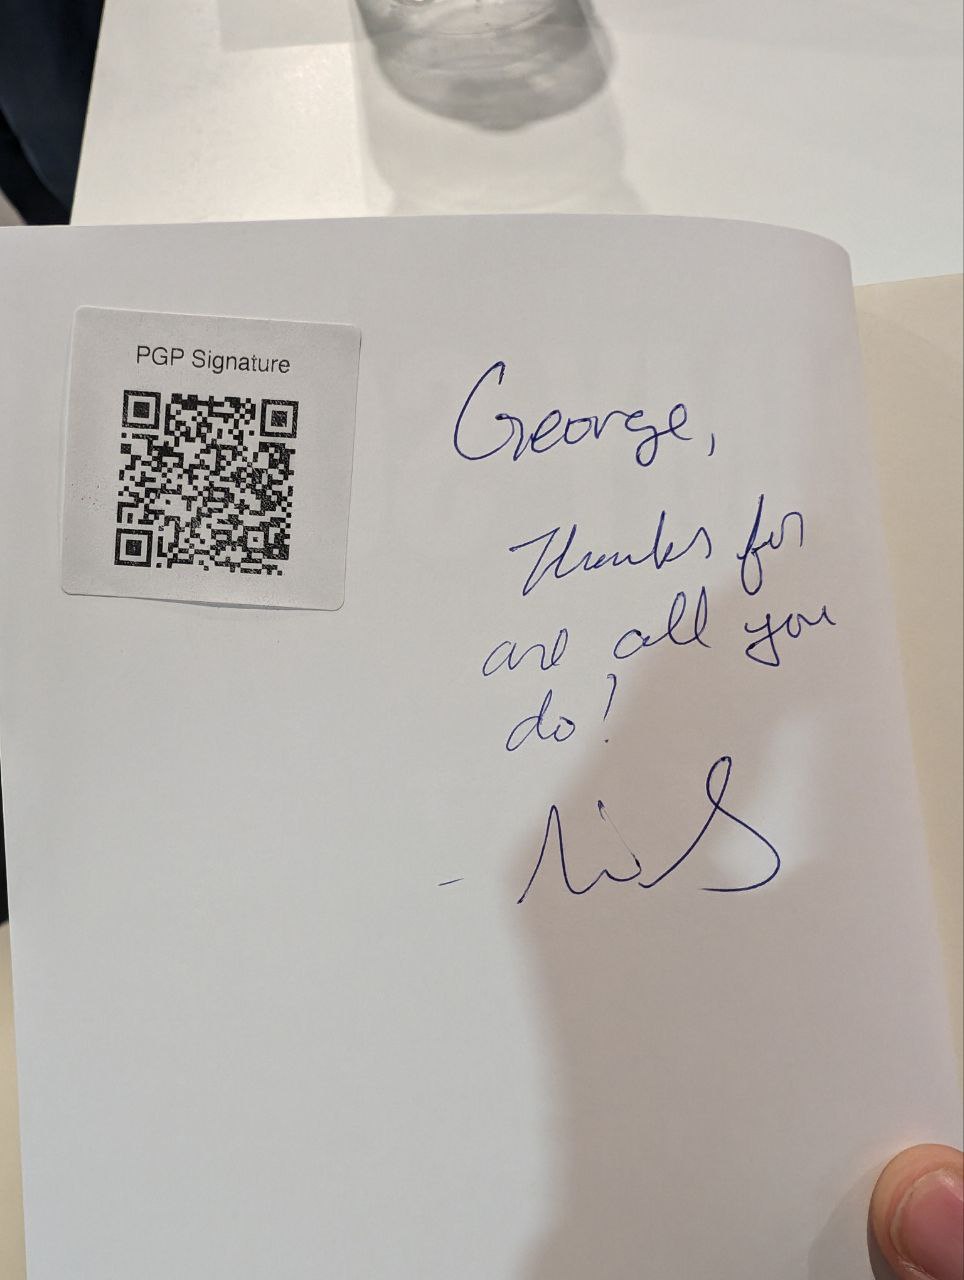 PGP Signature
George,
Thanks for
are all you
do!